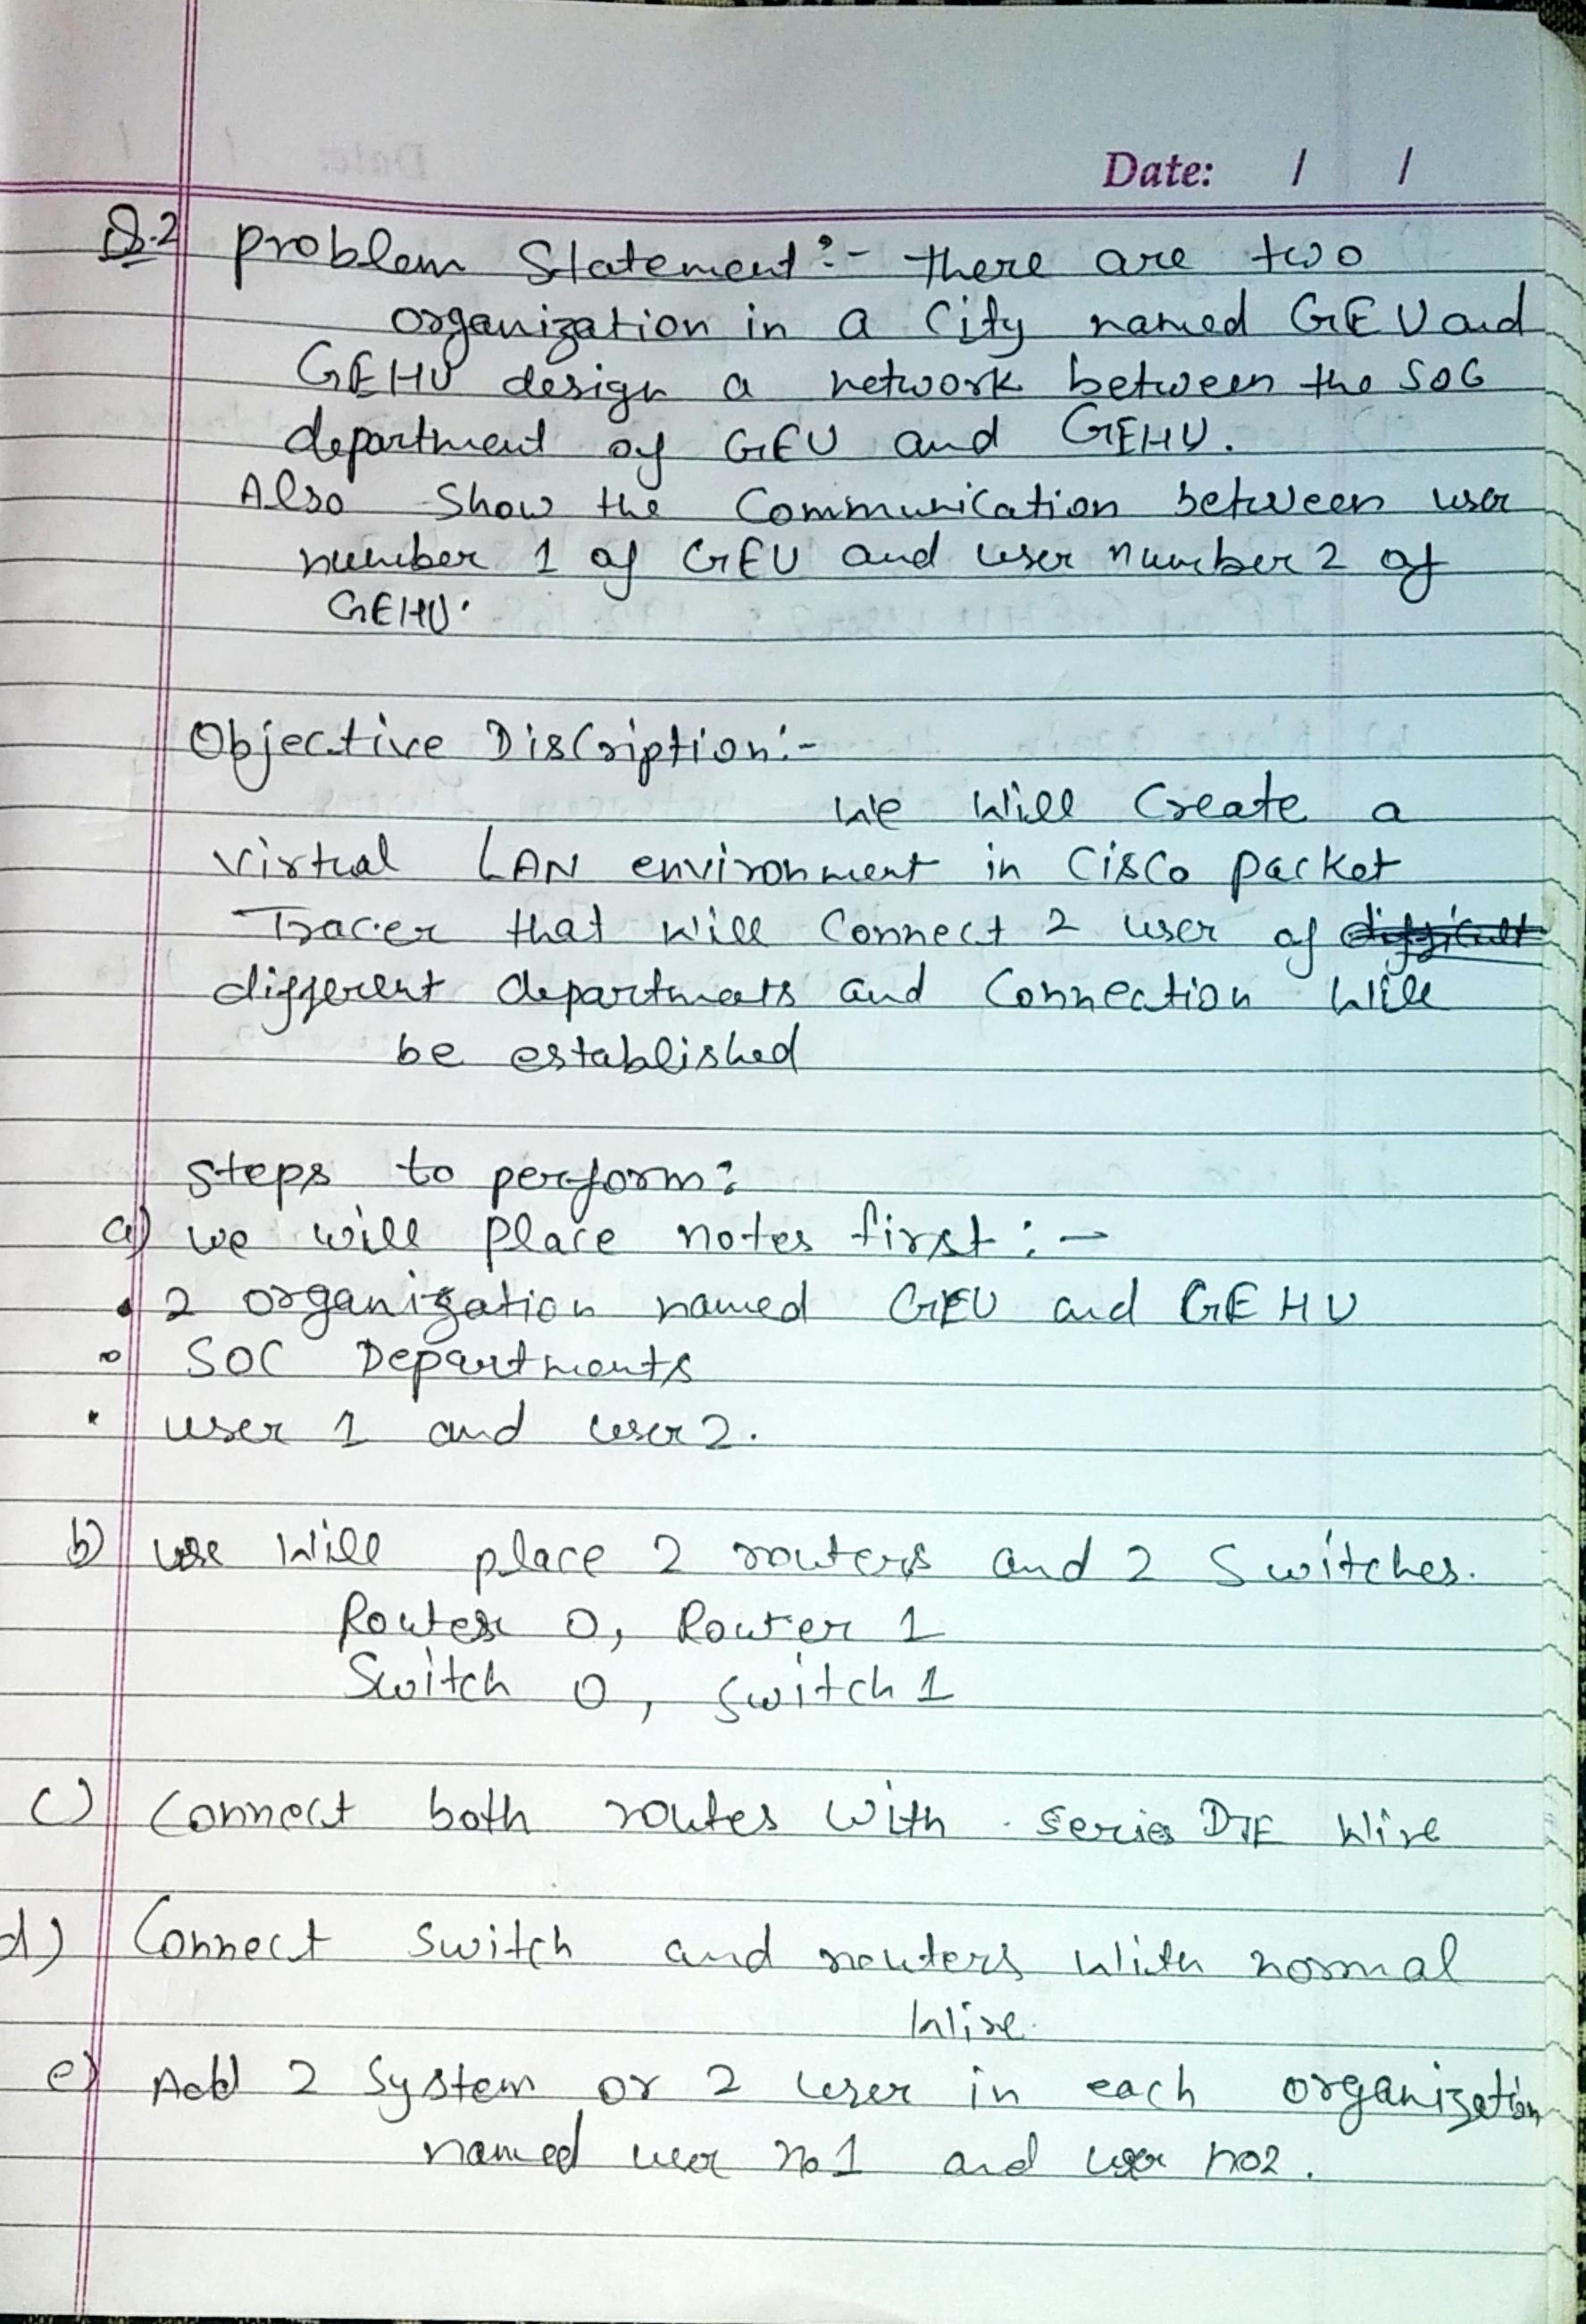 Date: / /
Q.2 problem Statement:- there are two
organization in a City named GEU and
GEHU design a network between the SOC
department of GEU and GEHU.
Also Show the Communication between user
number 1 of GEU and user number 2 of
GEHU.
Objective Discription:-
We Will Create a
Virtual LAN environment in Cisco packet
Tracer that will Connect 2 user of
different departments and Connection Will
be established
steps to perform:
a) we will place notes first :-
• 2 organization named GEU and GEHU
• SOC Departments
• user 1 and user 2.
b) we Will place 2 routers and 2 Switches.
Router 0, Router 1
Switch 0, Switch 1
c) Connect both routes With series DTE Wire
d) Connect Switch and routers With normal
Wire.
e) Add 2 System or 2 user in each organization
named user no1 and user no2.